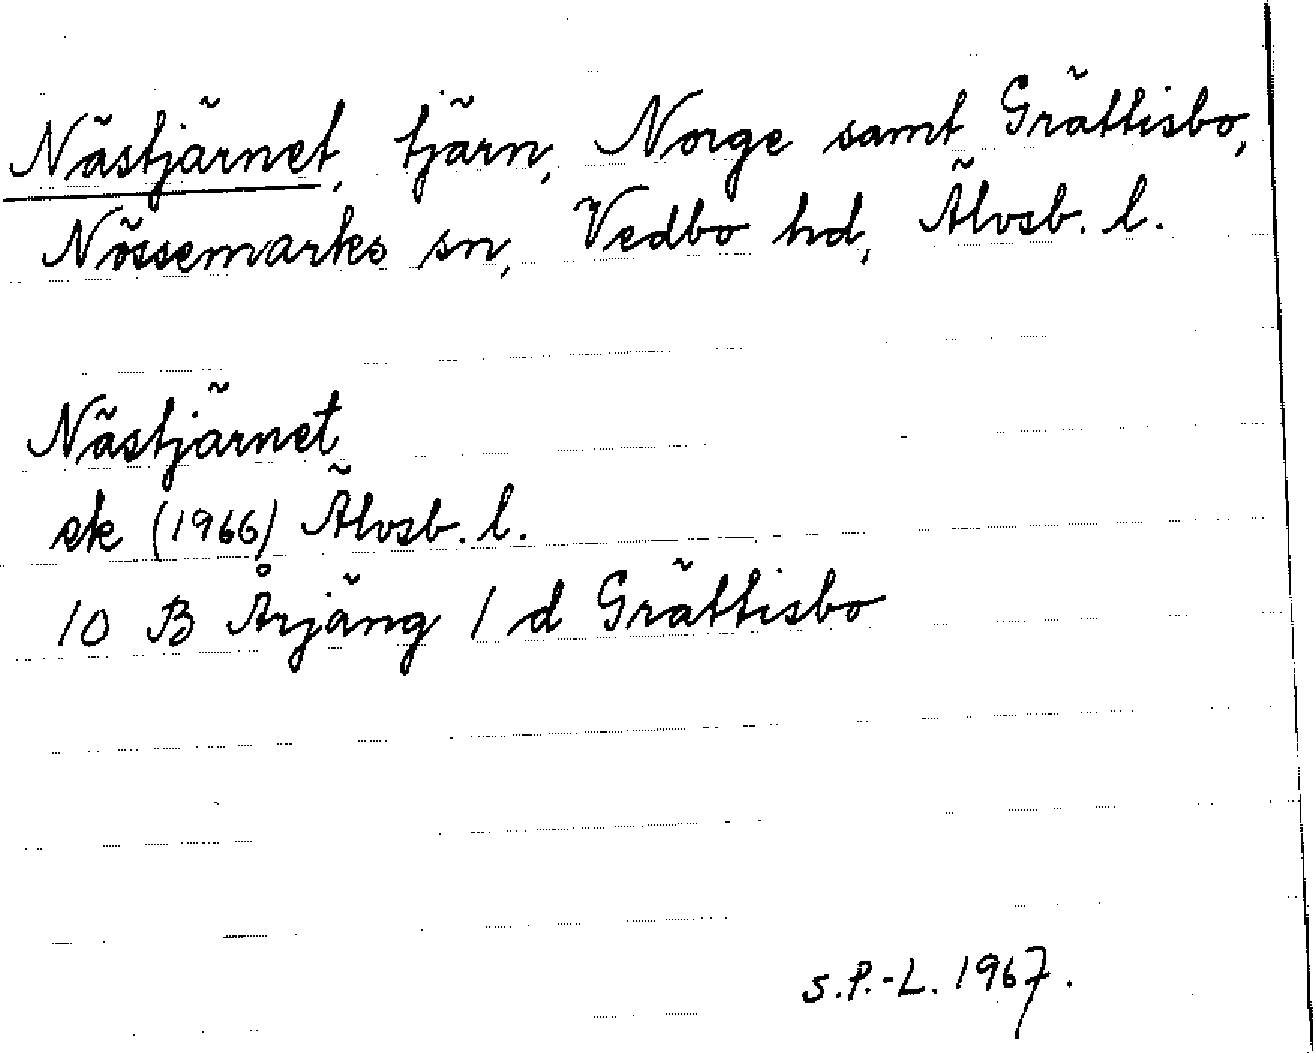 Nästjärnet, tjärn, Norge samt Grättisbo,
Nössemarks sn, Vedbo hd, Älvsb. l.
Nästjärnet
ek (1966) Älvsb. l.
10 B Årjäng 1 d Grättisbo
S.P.-L. 1967.